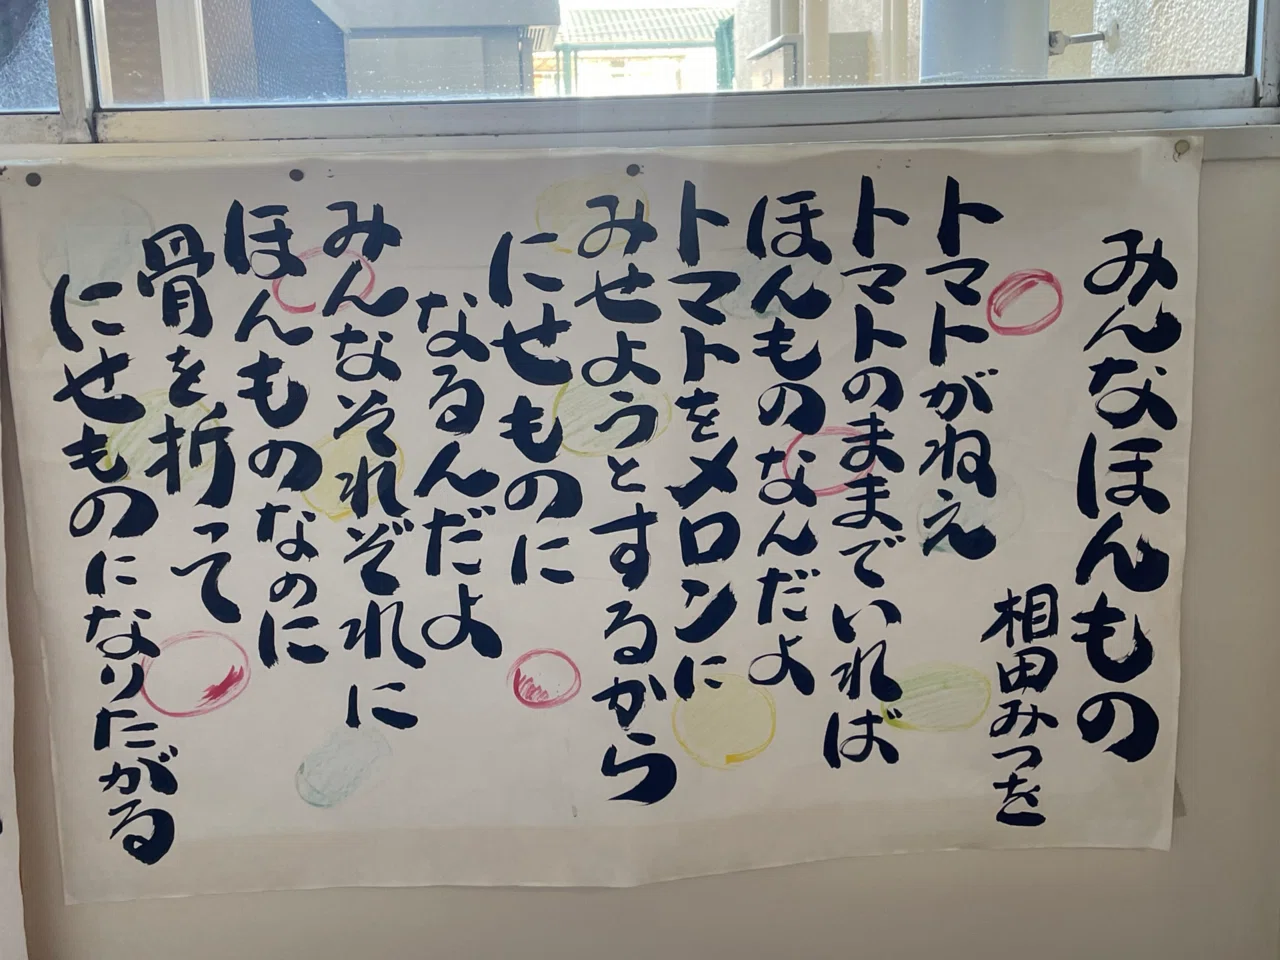 みんなほんもの
相田みつを
トマトがねえ
トマトのままでいれば
ほんものなんだよ
トマトをメロンに
みせようとするから
にせものに
なるんだよ
みんなそれぞれに
ほんものなのに
骨を折って
にせものになりたがる